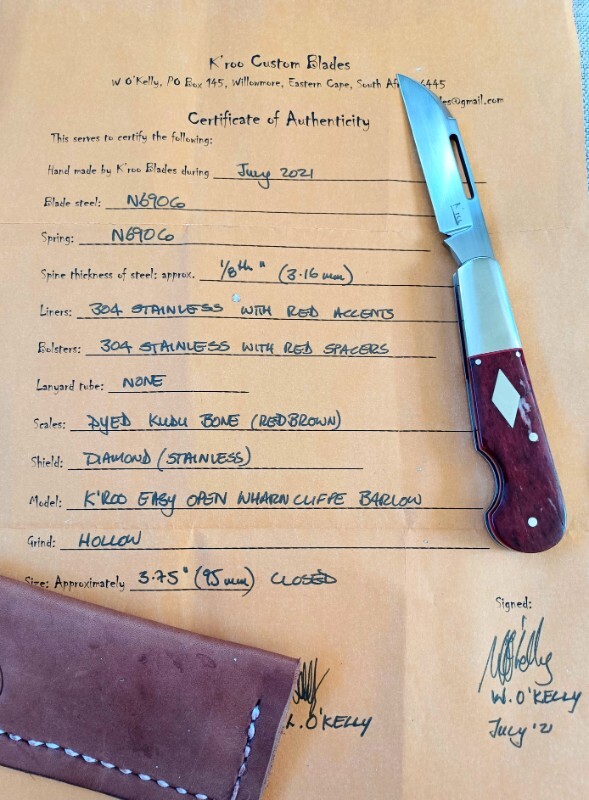 K'roo Custom Blades
W O'Kelly, PO Box 145, Willowmore, Eastern Cape, South 6445
@gmail.com
Certificate of Authenticity
This serves to certify the following:
Hand made by K'roo Blades during July 2021
Blade steel: N690Co
Spring: N690Co
Spine thickness of steel: approx. 1/8th" (3.16mm)
Liners: 304 STAINLESS WITH RED ACCENTS
Bolsters: 304 STAINLESS WITH RED SPACERS
Lanyard tube: NONE
Scales: DYED KUDU BONE (REDBROWN)
Shield: DIAMOND (STAINLESS)
Model: K'ROO EASY OPEN WHARNCLIFFE BARLOW
Grind: HOLLOW
Size: Approximately 3.75" (95mm) CLOSED
Signed:
W. O'KELLY
L. O'KELLY
July '21